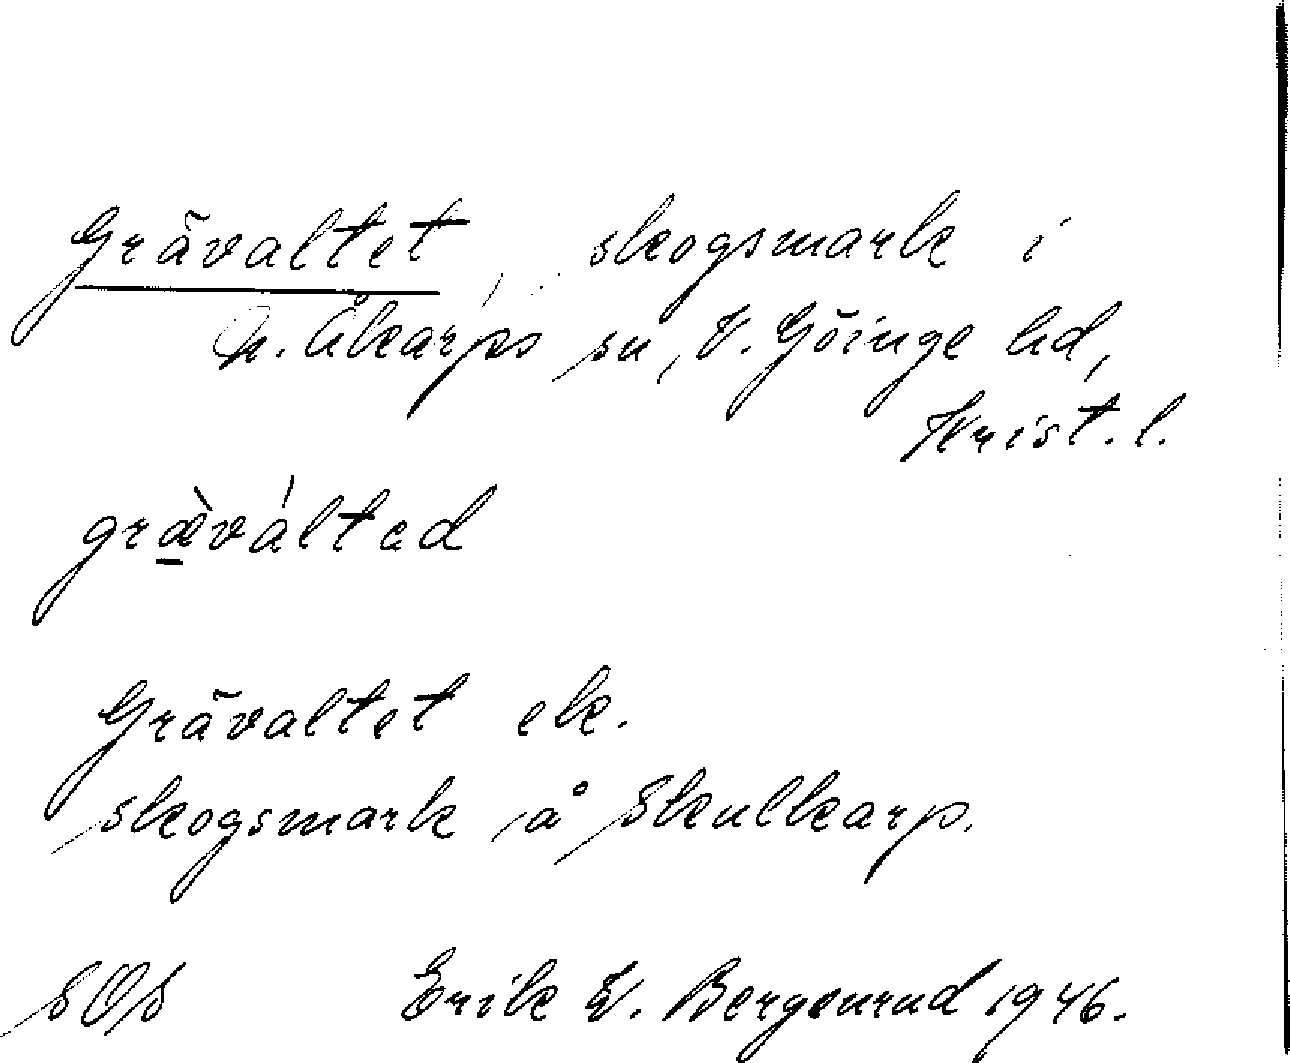 Grävaltet, skogsmark i
N. Åkarps sn, V. Göinge hd,
Krist. l.
græ̀váltəd
Grävaltet ek.
skogsmark å Skulkarp.
SOS Erik V. Bergenrud 1946.